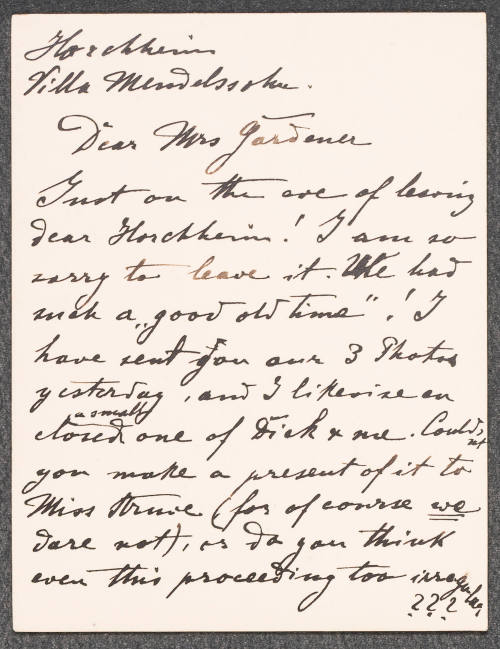 Horchheim
Villa Mendelssohn.
Dear Mrs Gardener
Just on the eve of leaving
dear Horchheim! I am so
sorry to leave it. We had
such a „good old time"! I
have sent you our 3 Photos
yesterday, and I likewise en
closed a small one of Dick & me. Could
not
you make a present of it to
Miss (for of course we
dare not), or do you think
even this proceeding too irregular
???